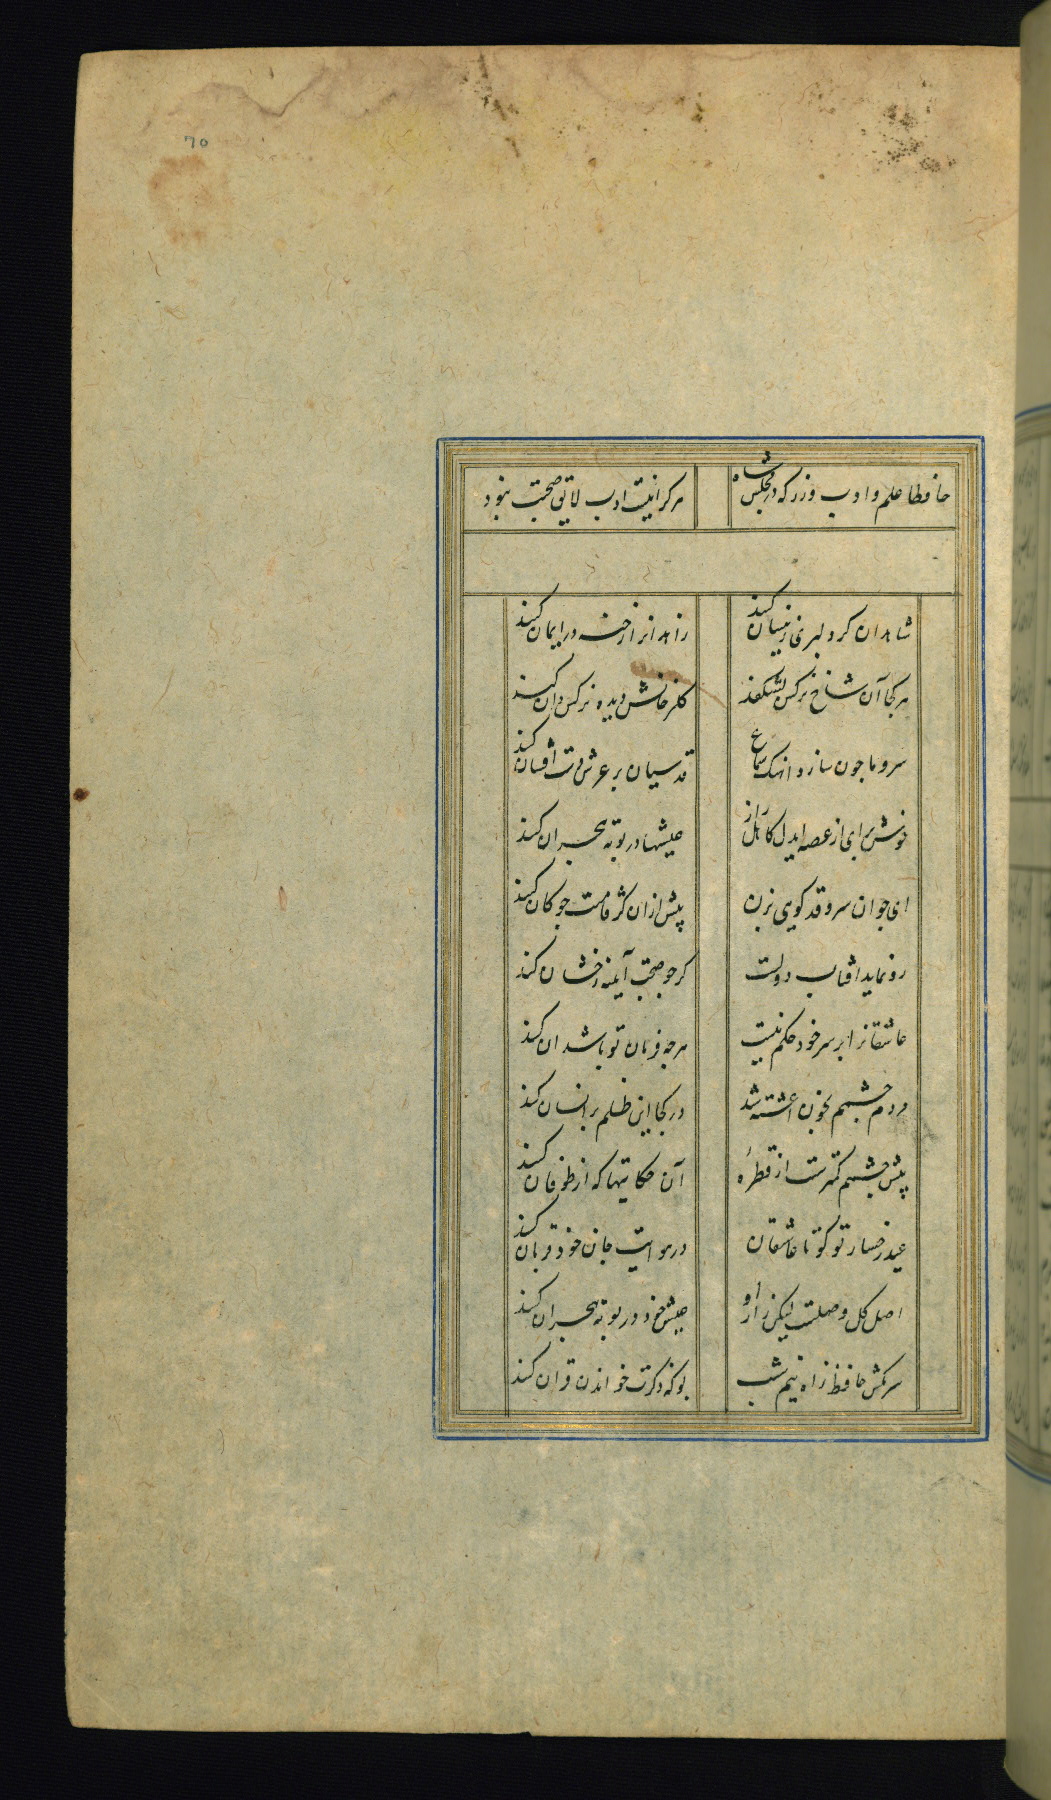 70
حافظا علم و ادب ورز که در مجلس شاه
هرکرا نیست ادب لایق صحبت نبود
شاهدان کر دلبری زینسان کنند
زاهدانرا رخنه در ایمان کنند
هر کجا آن شاخ نرکس بشکفد
کلرخانش دیده نرکس دان کنند
سرو ما چون سازد اهنک سماع
قدسیان بر عرش دست افشان کنند
خوش برای از غصه ایدل کاهل راز
عیشها در بوته هجران کنند
ای جوان سرو قد کویی بزن
پیش ازان کز قامتت چوکان کنند
رو نماید افتاب دولتت
کر چو صبحت آینه رخشان کنند
عاشقانرا بر سر خود حکم نیست
هرچه فرمان تو باشد ان کنند
مردم چشمم بخون اغشته شد
در کجا این ظلم بر انسان کنند
پیش چشمم کمترست از قطرۀ
آن حکایتها که از طوفان کنند
عید رخسار تو کو تا عاشقان
در هوایت جان خود قربان کنند
اصل کل وصلست لیکن زار او
عیش خود در بوته هجران کنند
سر مکش حافظ ز اه نیم شب